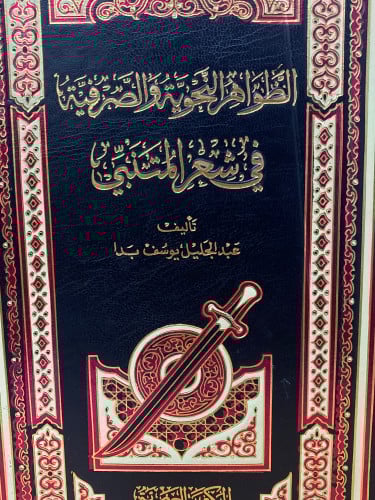 الظواهر النحوية والصرفية
في شعر المتنبي
تأليف
عبد الجليل يوسف بدا